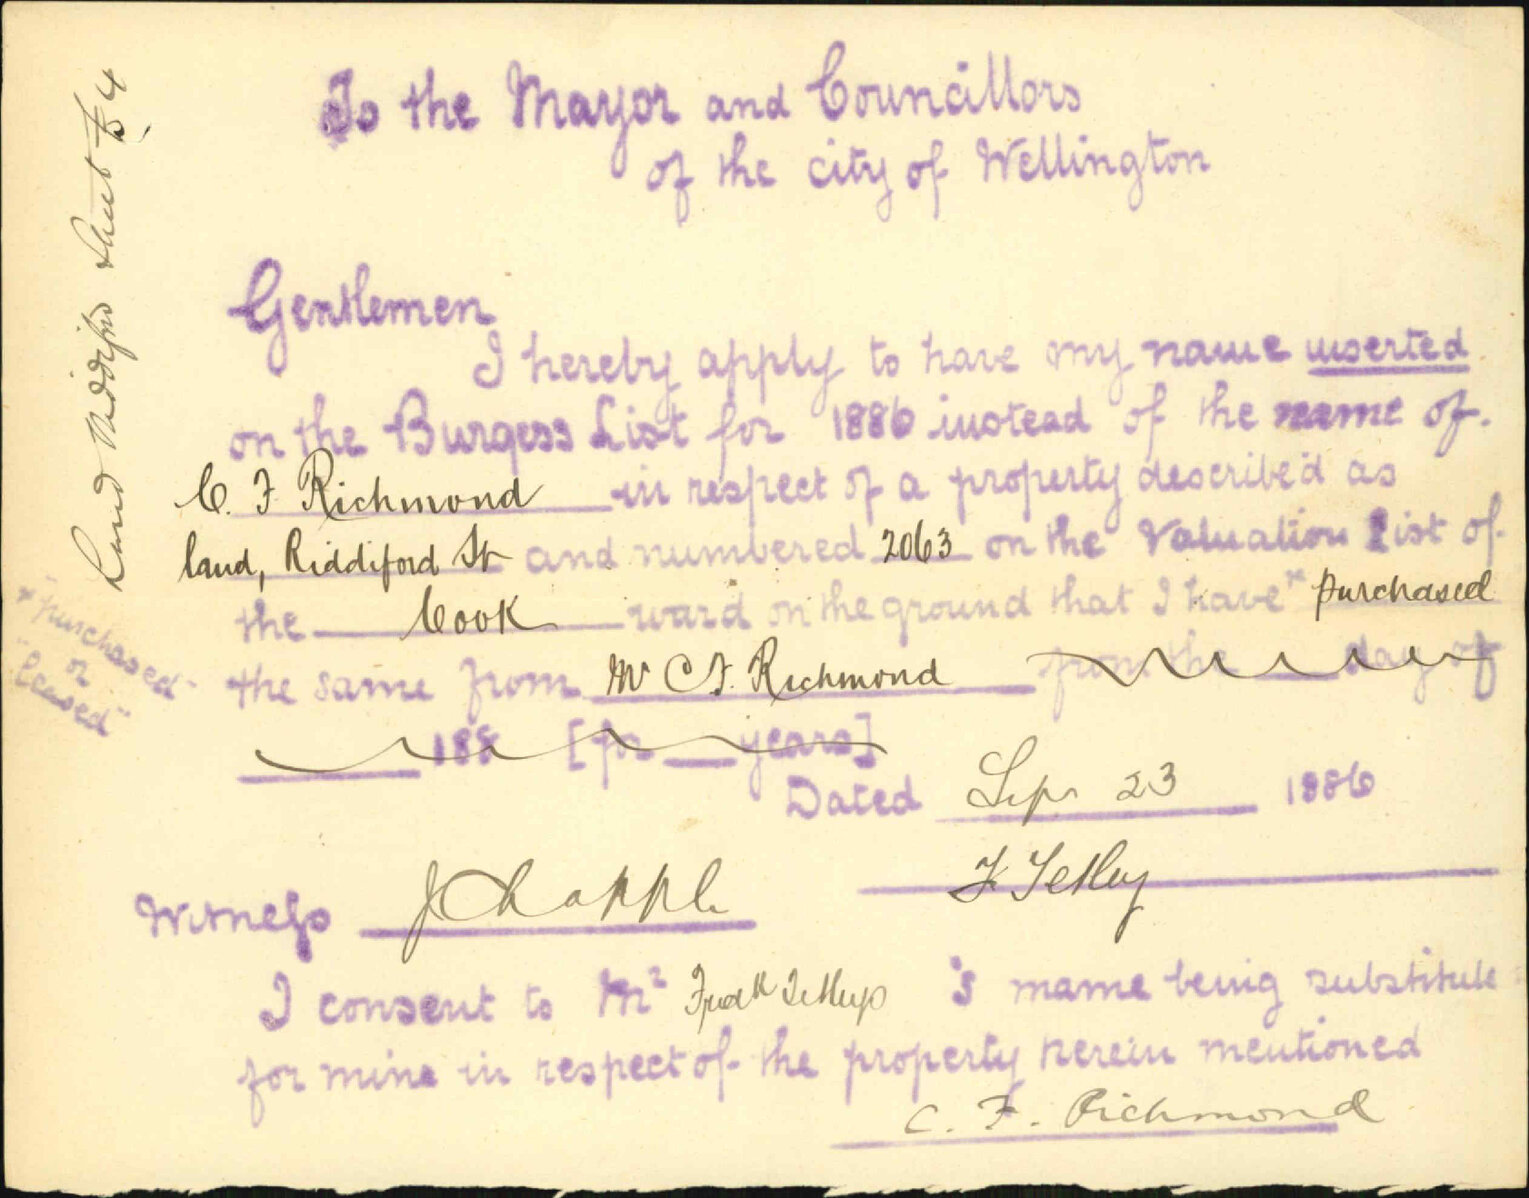 To the Mayor and Councillors
of the city of Wellington
Gentlemen
I hereby apply to have my name inserted
on the Burgess List for 1886 instead of the name of
C. F Richmond in respect of a property described as
land, Riddiford St and numbered 2063 on the Valuation List of
the Cook ward on the ground that I have * purchased
the same from Mr C F. Richmond from the day of
188 [for years]
Dated Sep 23 1886
F Tetley
Witness J Chapple
I consent to Mr Fredk Tetley 's name being substitute
for mine in respect of the property herein mentioned
C. F. Richmond
* "purchased"
or
"leased"
Land